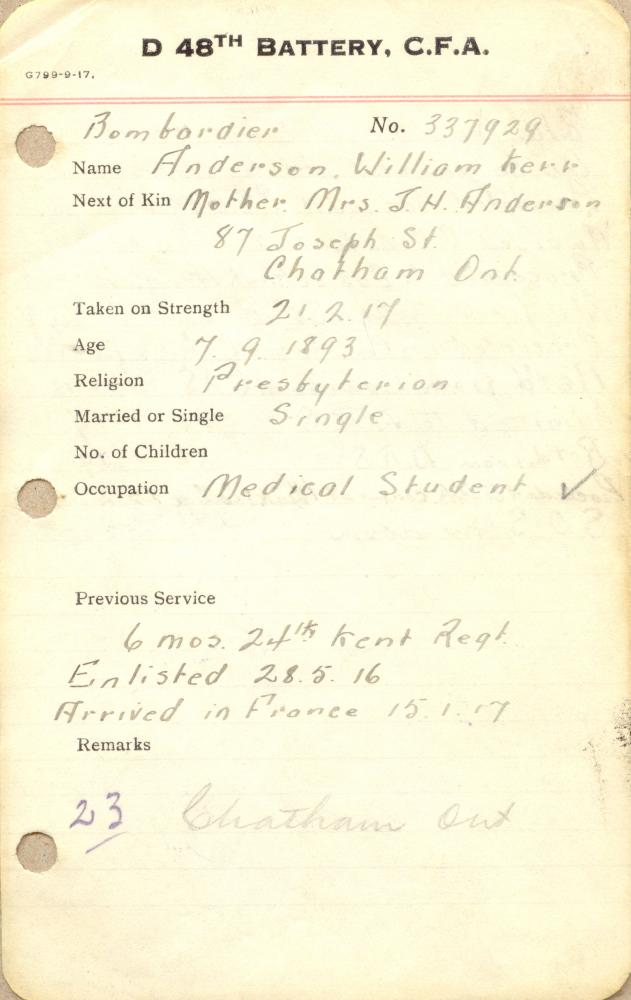 D 48TH BATTERY, C.F.A.
G799-9-17.
Bombardier No. 337929
Name Anderson, William Kerr
Next of Kin Mother. Mrs. J. H. Anderson
87 Joseph St.
Chatham Ont.
Taken on Strength 21. 2. 17
Age 7. 9. 1893
Religion Presbyterian
Married or Single Single.
No. of Children
Occupation Medical Student ✓
Previous Service
6 mos. 24th Kent Regt.
Enlisted 28. 5. 16
Arrived in France 15. 1. 17
Remarks
23 Chatham Ont